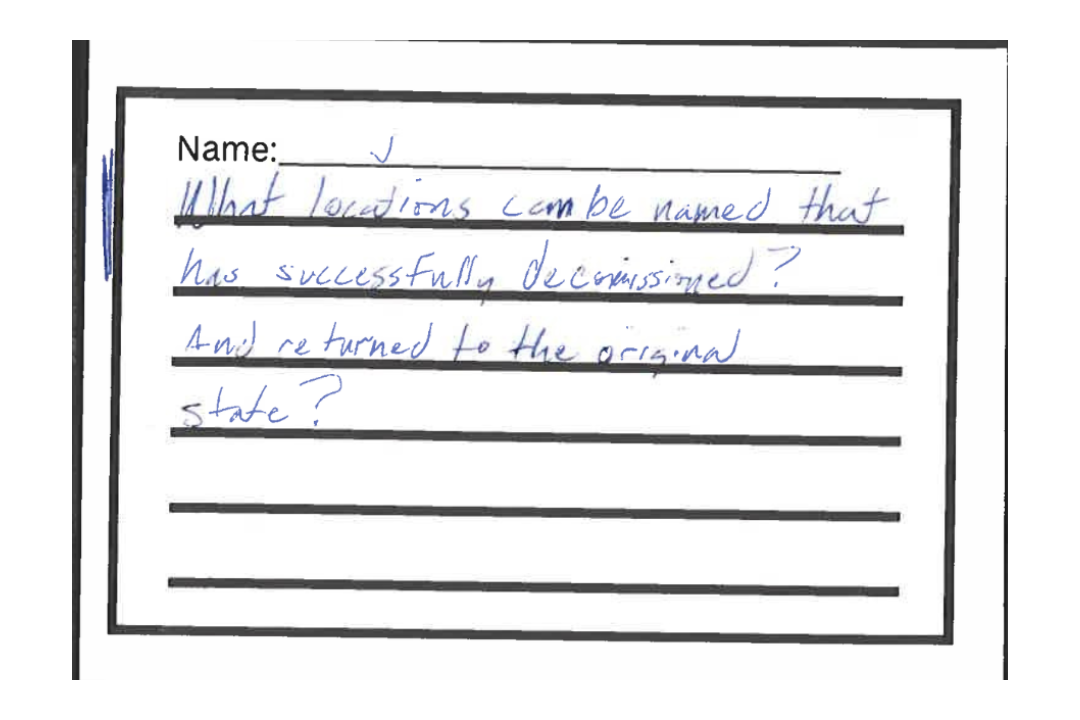 Name: J
What locations can be named that
has successfully decomissioned?
And returned to the original
state?